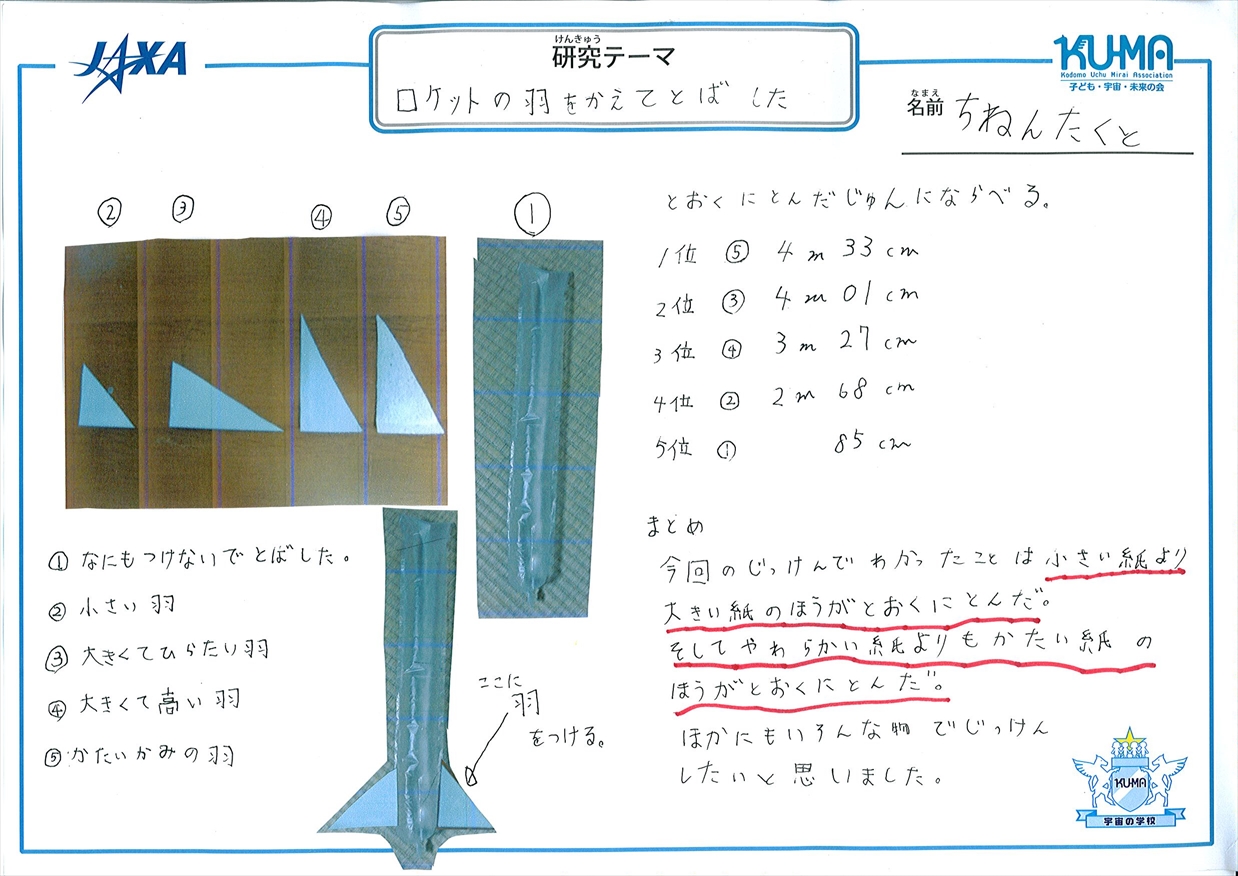 JAXA
けんきゅう
研究テーマ
ロケットの羽をかえてとばした
KU-MA
Kodomo Uchu Mirai Association
子ども・宇宙・未来の会
なまえ
名前 ちねんたくと
② ③ ④ ⑤ ①
①なにもつけないでとばした。
②小さい羽
③大きくてひらたい羽
④大きくて高い羽
⑤かたいかみの羽
ここに
羽
をつける。
とおくにとんだじゅんにならべる。
1位 ⑤ 4m33cm
2位 ③ 4m01cm
3位 ④ 3m27cm
4位 ② 2m68cm
5位 ① 85cm
まとめ
今回のじっけんでわかったことは小さい紙より
大きい紙のほうがとおくにとんだ。
そしてやわらかい紙よりもかたい紙の
ほうがとおくにとんだ。
ほかにもいろんな物でじっけん
したいと思いました。
KU-MA
宇宙の学校